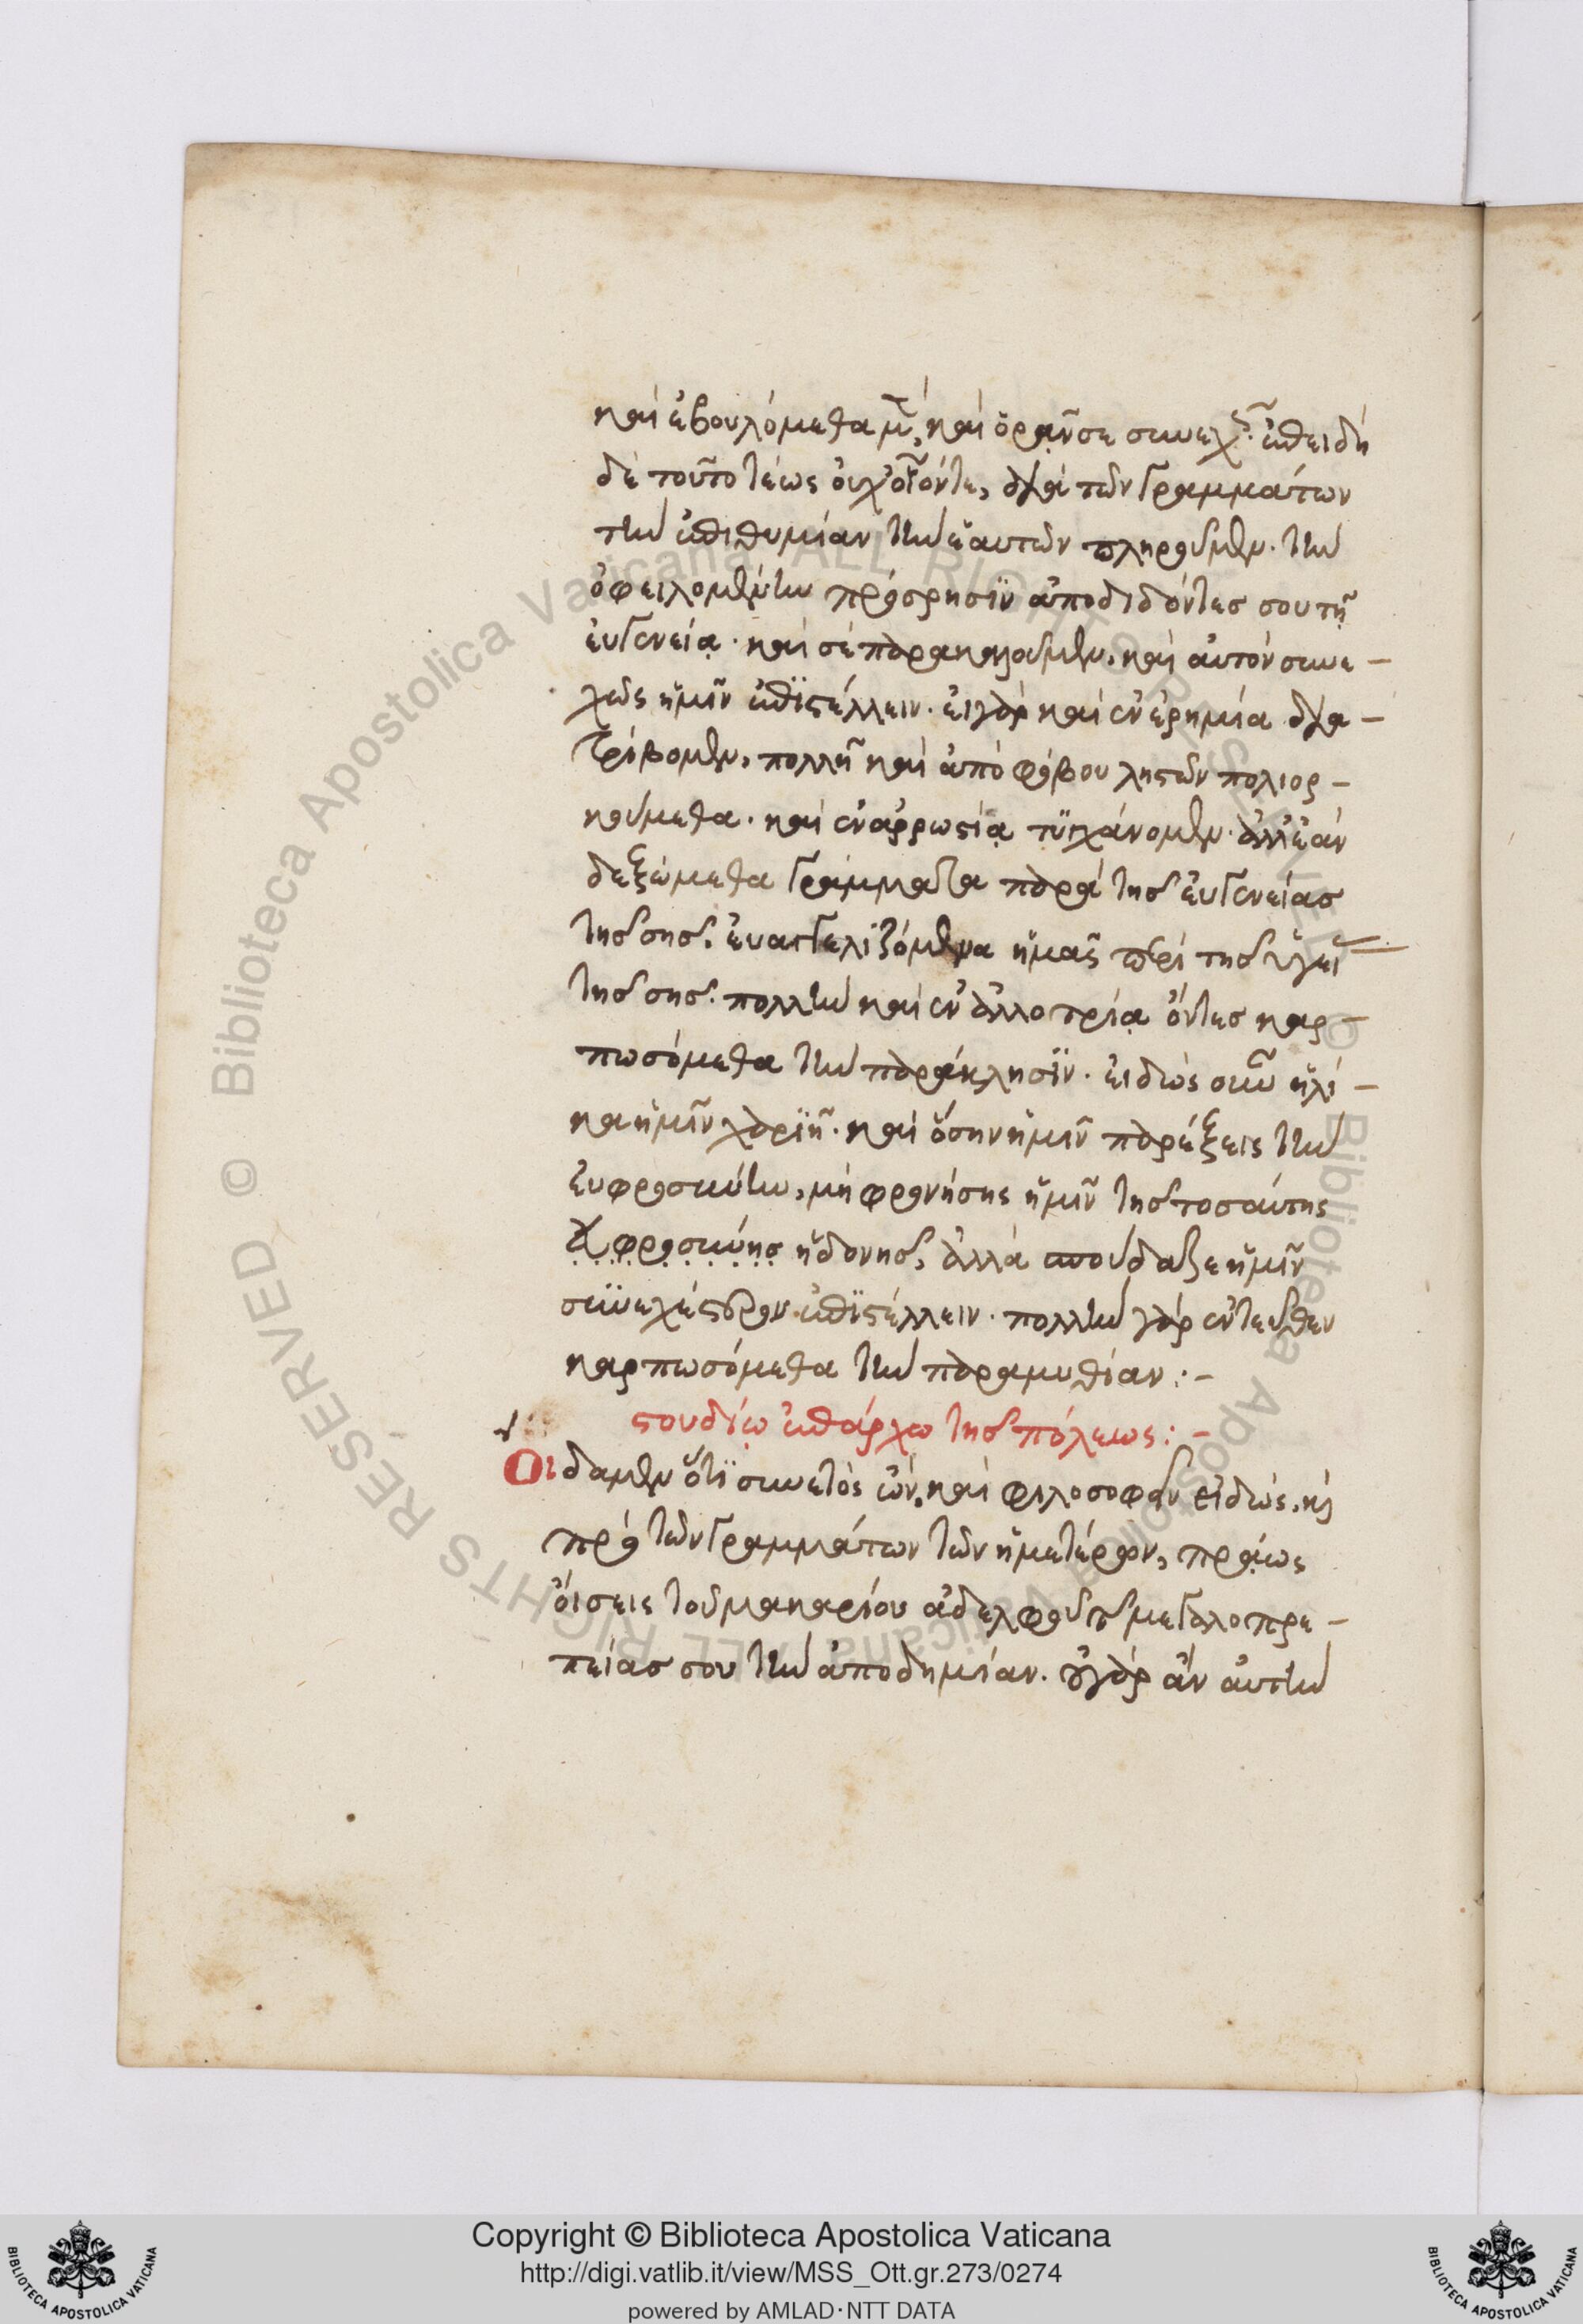 καὶ ἐβουλόμεθα μὲν, καὶ ὁρᾶν σε συνεχῶς. ἐπειδὴ
δὲ τοῦτο τέως οὐχ οἷόν τε, διὰ τῶν γραμμάτων
τὴν ἐπιθυμίαν τὴν ἑαυτῶν πληροῦμεν. τὴν
ὀφειλομένην πρόσρησϊν ἀποδιδόντες σου τῇ
εὐγενείᾳ. καὶ σὲ παρακαλοῦμεν, καὶ αὐτὸν συνε-
χῶς ἡμῖν ἐπϊστέλλειν. εἰ γὰρ καὶ ἐν ἐρημία δια-
τρίβομεν, πολλῆ καὶ ἀπὸ φόβου ληστῶν πολιορ-
κούμεθα. καὶ ἐν ἀρρωστίᾳ τϋγχάνομεν. ἀλλ' ἐὰν
δεξώμεθα γράμματα παρὰ τῆς εὐγενείας
τῆς σῆς, εὐαγγελϊζόμενα ἡμᾶς περὶ τῆς ὑγιεί
τῆς σῆς. πολλὴν καὶ ἐν ἀλλοτρίᾳ ὄντες καρ-
πωσόμεθα τὴν παράκλησϊν. εἰδὼς οὖν ἡλί-
κα ἡμῖν χαρϊῆ. καὶ ὅσην ἡμῖν παρέξεις τὴν
εὐφροσύνην, μὴ φρονήσης ἡμῖν τῆς τοσαύτης
εὐφροσύνης ἡδονῆς, ἀλλὰ σπούδαζε ἡμῖν
συνεχέστερον ἐπϊστέλλειν. πολλὴν γὰρ ἐντεῦθεν
καρπωσόμεθα τὴν παραμυθίαν :-
στουδίῳ ἐπάρχω τῆς πόλεως :-
Οἴδαμεν ὅτϊ συνετὸς ὢν, καὶ φιλοσοφεῖν εἰδὼς, κὶ
πρὸ τῶν γραμμάτων τῶν ἡμετέρων, πρᾴως
οἴσεις τοῦ μακαρίου ἀδελφοῦ τῆς μεγαλοπρε-
πείας σου τὴν ἀποδημίαν. οὐ γὰρ ἂν αὐτὴν
Copyright © Biblioteca Apostolica Vaticana
http://digi.vatlib.it/view/MSS_Ott.gr.273/0274
powered by AMLAD·NTT DATA